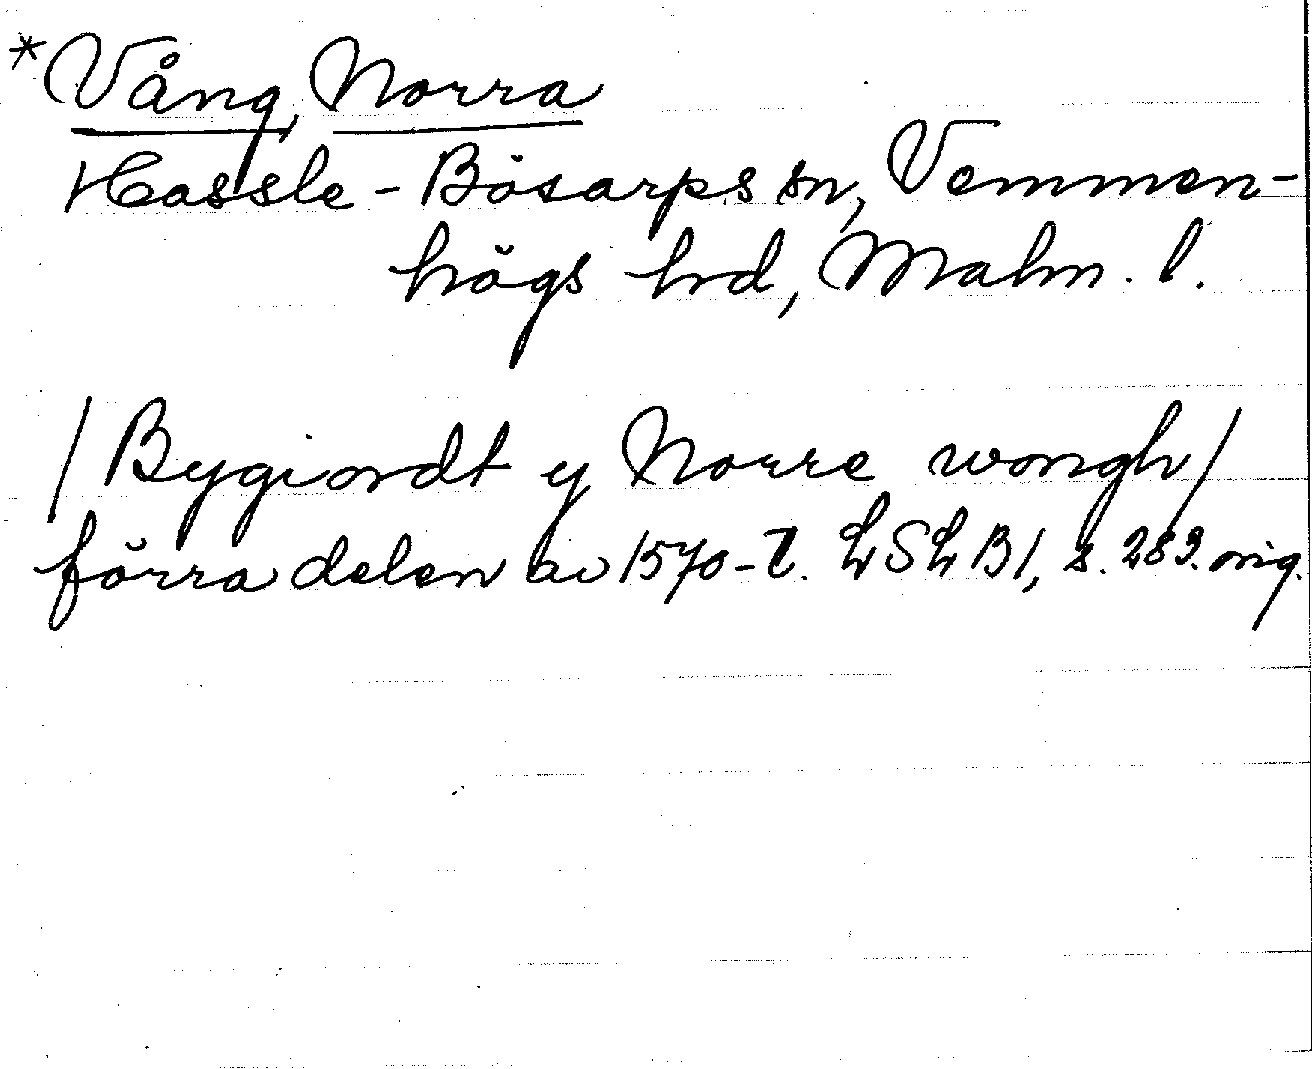 *Vång, Norra
Hassle-Bösarps sn, Vemmen-
högs hd, Malm. l.
/Bygiordt y Norre wongh/
förra delen av 1570-t. LSL B1, s. 283. orig.